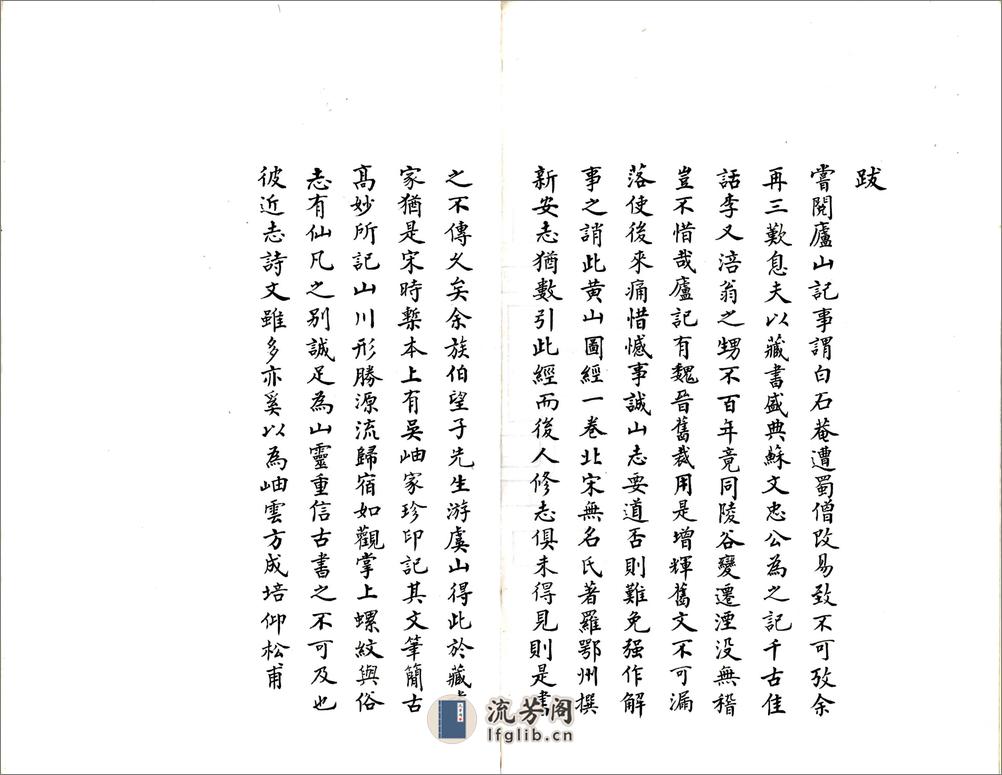 跋
嘗閱廬山記事謂白石菴遭蜀僧改易致不可攷余
再三歎息夫以藏書盛典蘇文忠公為之記千古佳
話李又涪翁之甥不百年竟同陵谷變遷湮没無稽
豈不惜哉廬記有魏晉舊裁用是增輝舊文不可漏
落使後來痛惜憾事誠山志要道否則難免强作解
事之誚此黄山圖經一卷北宋無名氏著羅鄂州撰
新安志猶數引此經而後人修志俱未得見則是書
之不傳久矣余族伯望子先生游虞山得此於藏
家猶是宋時槧本上有吳岫家珍印記其文筆簡古
高妙所記山川形勝源流歸宿如觀掌上螺紋與俗
志有仙凡之别誠足為山靈重信古書之不可及也
彼近志詩文雖多亦奚以為岫雲方成培仰松甫
流芳阁
lfglib.cn